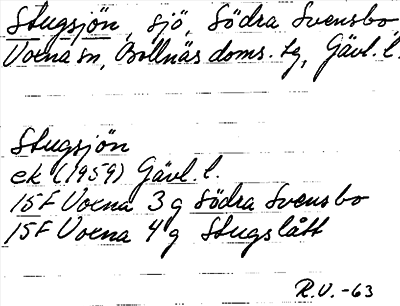 Stugsjön, sjö, Södra Svensbo,
Voxna sn, Bollnäs doms. tg, Gävl. l.
Stugsjön
ek (1959) Gävl. l.
15F Voxna 3 g Södra Svensbo
15F Voxna 4 g Stugslått
R.V. -63